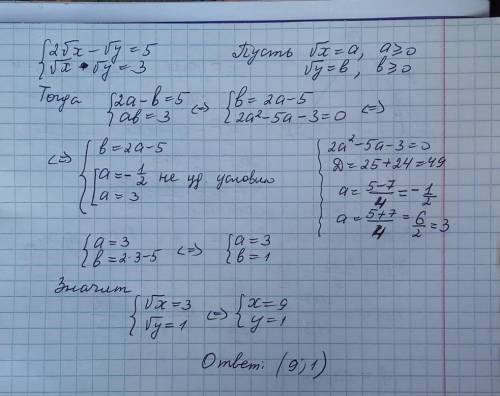 {2√x − √y = 5
{√x · √y = 3
Пусть √x = a, a ≥ 0
√y = b, b ≥ 0
Тогда {2a − b = 5 <=> {b = 2a − 5 <=>
{ab = 3 {2a² − 5a − 3 = 0
<=> {b = 2a − 5
[a = −1/2 не уд. условию
[a = 3
2a² − 5a − 3 = 0
D = 25 + 24 = 49
a = (5 − 7)/4 = −1/2
a = (5 + 7)/4 = 6/2 = 3
{a = 3 <=> {a = 3
{b = 2·3 − 5 {b = 1
Значит
{√x = 3 <=> {x = 9
{√y = 1 {y = 1
Ответ: (9; 1)